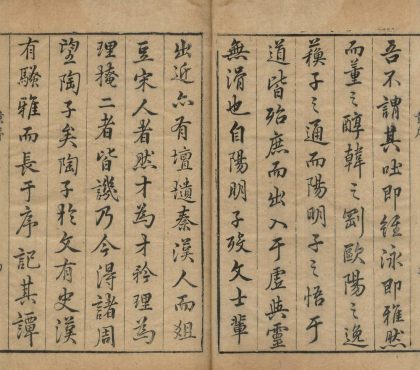 吾不謂其吐即經泳即雅然
而董之醇韓之劉歐陽之逸
蘇子之通而陽明子之悟于
道皆殆庶而出入于虛與靈
無滑也自陽明子歿文士輩
出近亦有壇𫎇秦漢人而俎
豆宋人者然才為才矜理為
理掩二者皆譏乃今得諸周
望陶子矣陶子於文有史漢
有騷雅而長于序記其譚